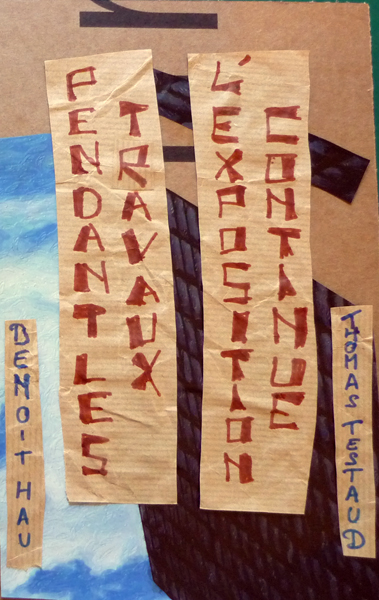 PENDANT LES
TRAVAUX
L'EXPOSITION
CONTINUE
BENOIT HAU
THOMAS TESTAUD